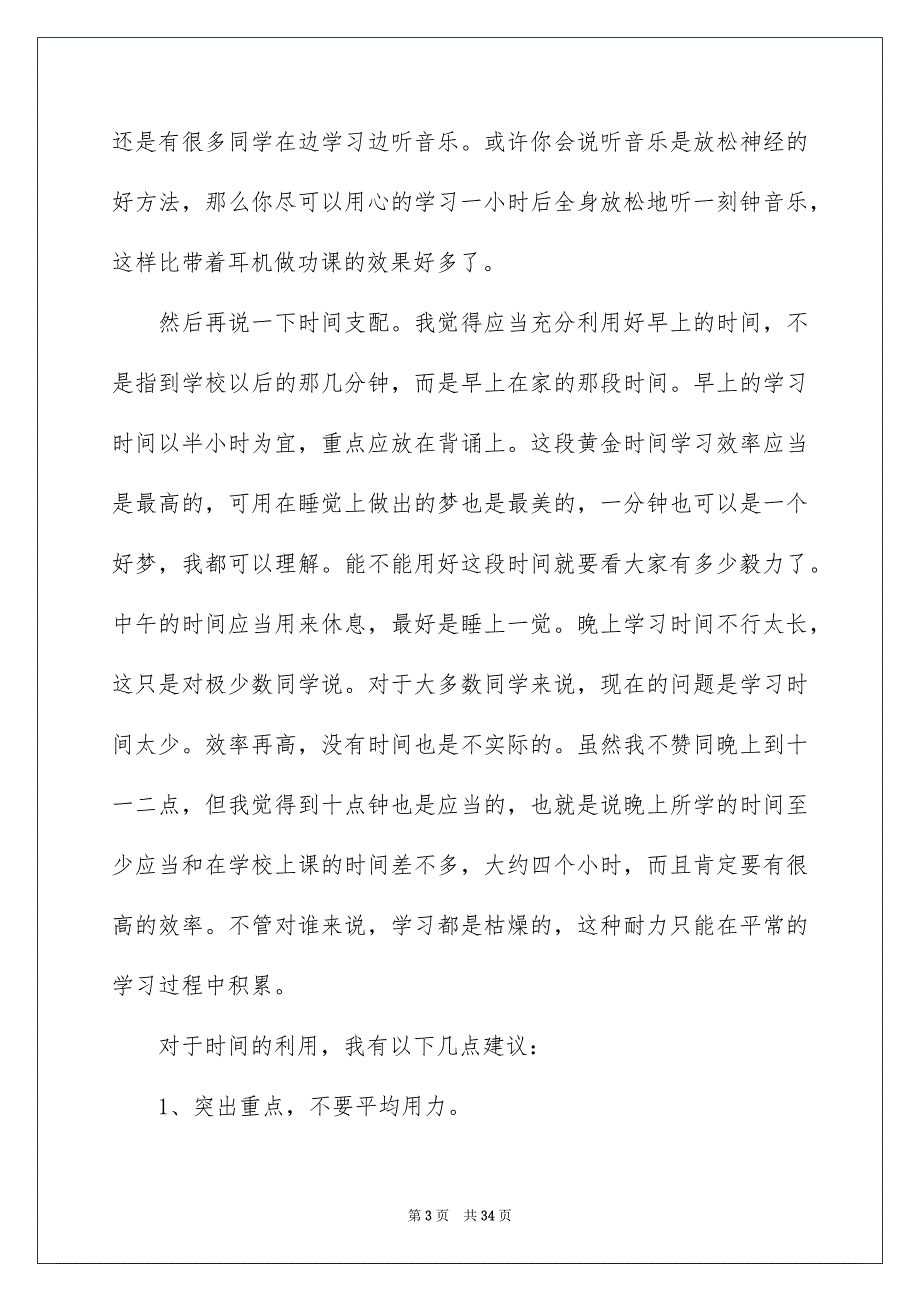 还是有很多同学在边学习边听音乐。或许你会说听音乐是放松神经的
好方法，那么你尽可以用心的学习一小时后全身放松地听一刻钟音乐，
这样比带着耳机做功课的效果好多了。
然后再说一下时间支配。我觉得应当充分利用好早上的时间，不
是指到学校以后的那几分钟，而是早上在家的那段时间。早上的学习
时间以半小时为宜，重点应放在背诵上。这段黄金时间学习效率应当
是最高的，可用在睡觉上做出的梦也是最美的，一分钟也可以是一个
好梦，我都可以理解。能不能用好这段时间就要看大家有多少毅力了。
中午的时间应当用来休息，最好是睡上一觉。晚上学习时间不行太长，
这只是对极少数同学说。对于大多数同学来说，现在的问题是学习时
间太少。效率再高，没有时间也是不实际的。虽然我不赞同晚上到十
一二点，但我觉得到十点钟也是应当的，也就是说晚上所学的时间至
少应当和在学校上课的时间差不多，大约四个小时，而且肯定要有很
高的效率。不管对谁来说，学习都是枯燥的，这种耐力只能在平常的
学习过程中积累。
对于时间的利用，我有以下几点建议：
1、突出重点，不要平均用力。
第 3 页 共 34 页